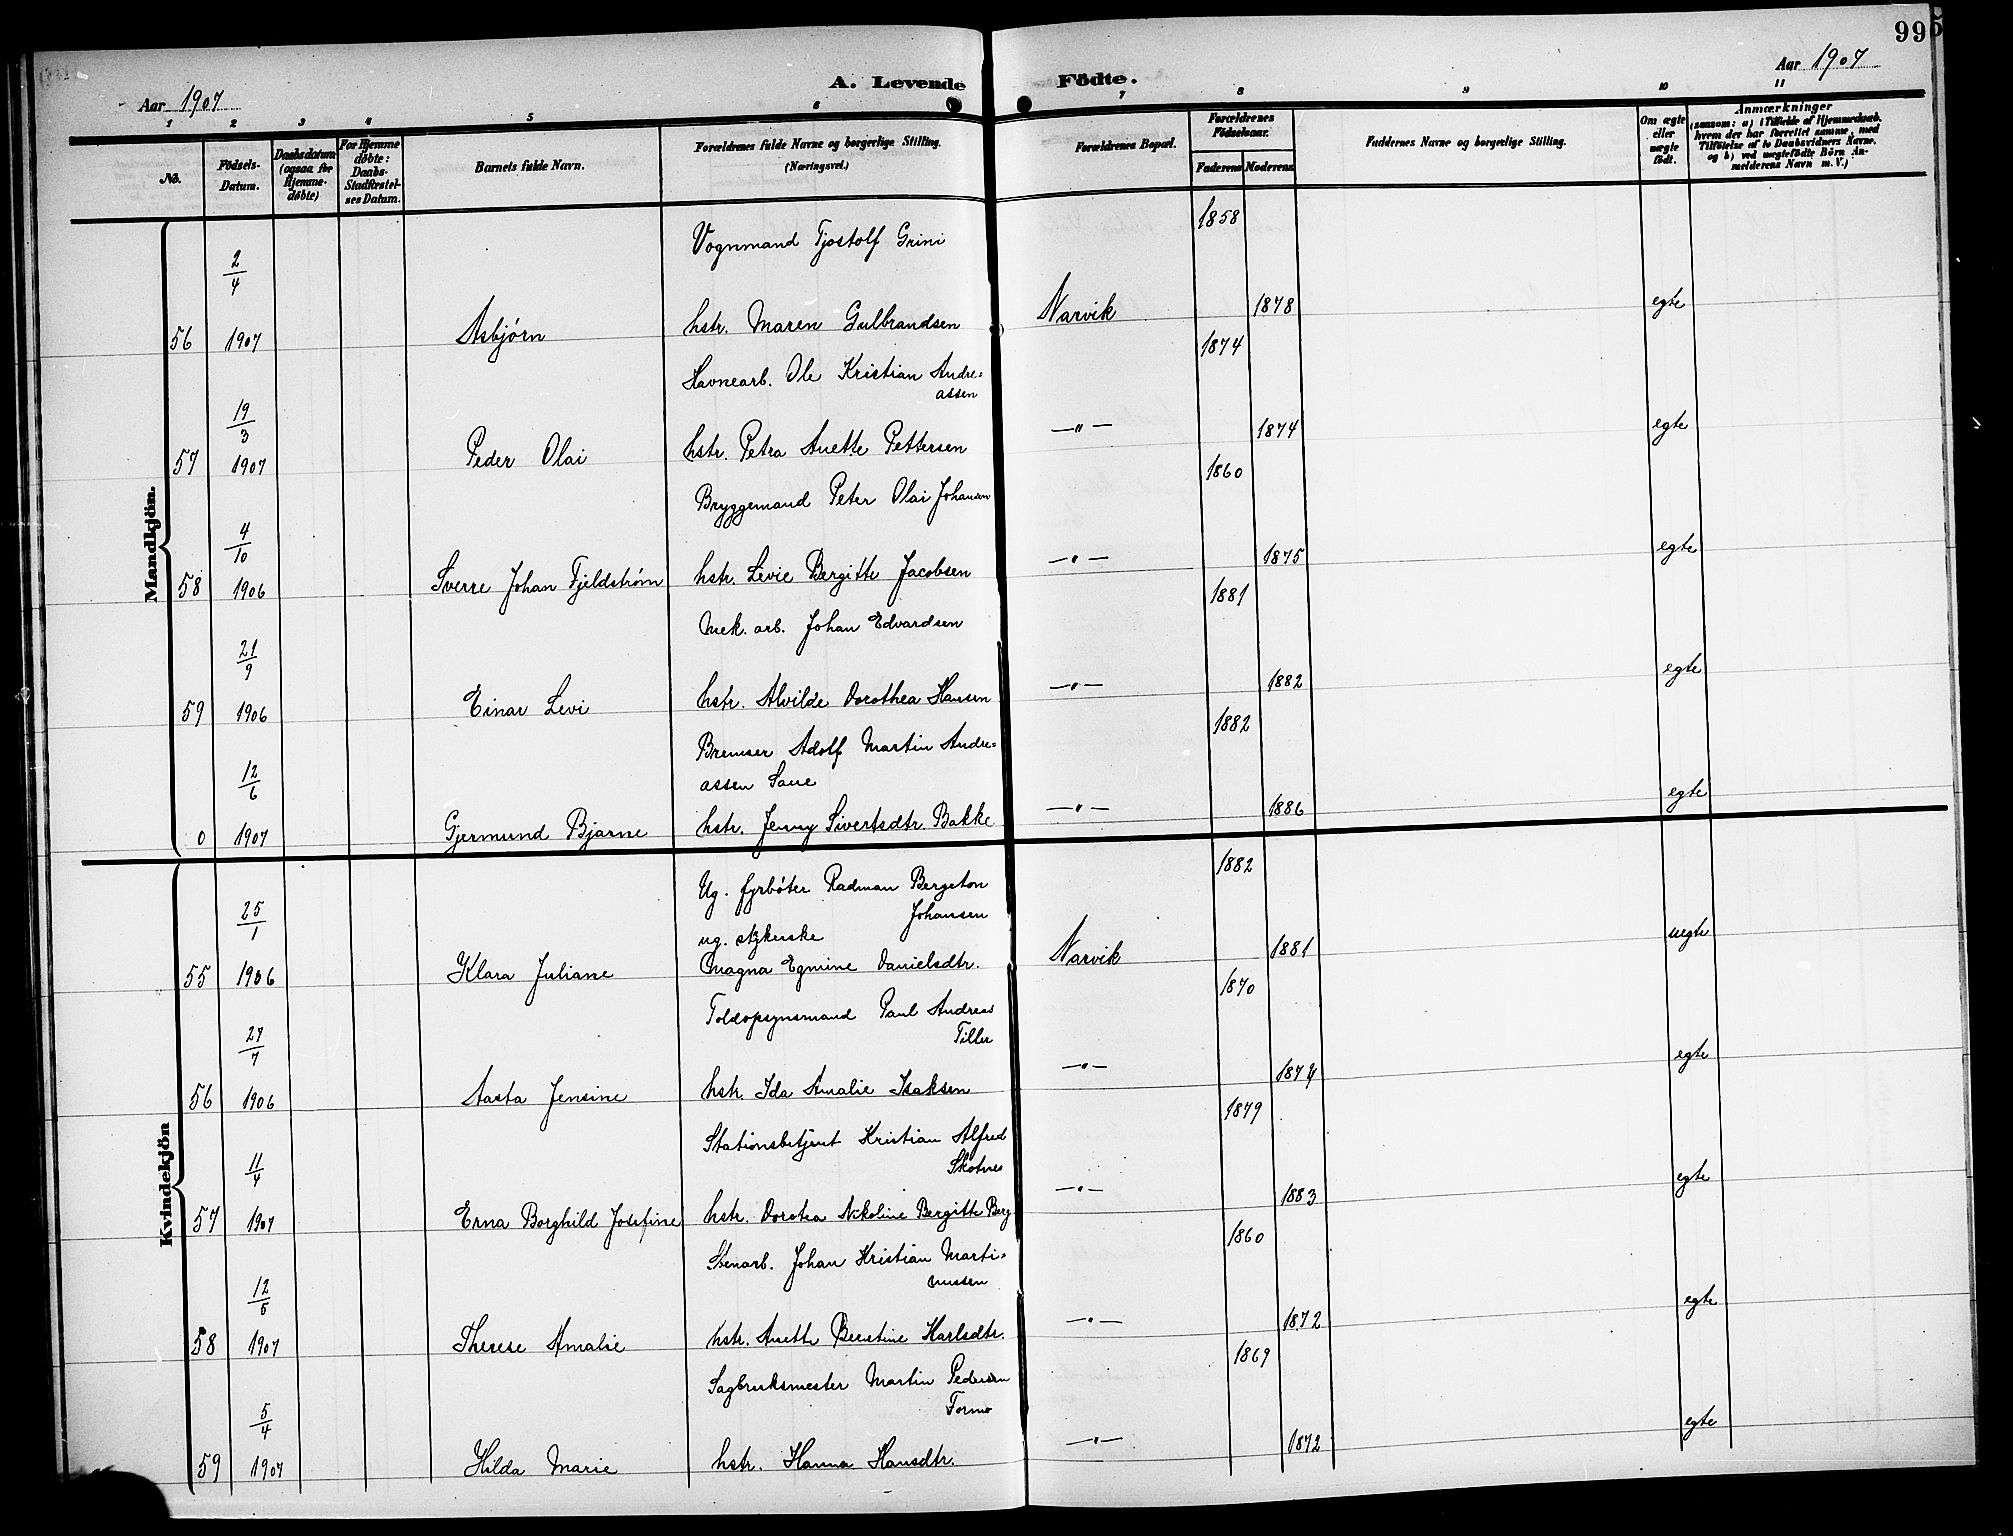 995
Aar 1907
A. Levende Födte.
Aar 1907
1 2 3 4 5 6 7 8 9 10 11
No.
Födsels-Datum.
Daabsdatum (ogsaa for Hjemme-døbte)
For Hjemme døbte: Daabs-Stadfæstel-ses Datum.
Barnets fulde Navn.
Forældrenes fulde Navne og borgerlige Stilling. (Næringsvei.)
Forældrenes Bopæl.
Forældrenes Födselsaar.
Faderens Moderens
Faddernes Navne og borgerlige Stilling.
Om ægte eller uægte födt.
Anmærkninger
(saasom: a) i Tilfælde af Hjemmedaab, hvem der har forrettet samme, med Tilföielse af to Daabsvidners Navne. og b) ved uægtefödte Börn Anmelderens Navn m. V.)
Mandkjön.
Vognmand Tjostolf Grini 1858
56 2/4 1907 Asbjørn hstr. Maren Gulbrandsen Narvik 1878 egte
Havnearb. Ole Kristian Andre= 1874
assen
57 19/3 1907 Peder Olai hstr. Petra Anette Pettersen —"— 1874 egte
Bryggemand Peter Olai Johansen 1860
58 4/10 1906 Sverre Johan Fjeldstrøm hstr. Levie Bergitte Jacobsen —"— 1875 egte
Mek. arb. Johan Edvardsen 1881
59 21/9 1906 Einar Levi hstr. Alvilde Dorothea Hansen —"— 1882 egte
Bremser Adolf Martin Andre= 1882
assen Saue
0 12/6 1907 Gjermund Bjarne hstr. Jenny Sivertsdtr. Bakke —"— 1886 egte
Kvindekjön
Ug. fyrbøter Radman Bergeton 1882
Johansen
ug. strykerske
55 25/1 1906 Klara Juliane Magna Egmine Danielsdtr. Narvik 1881 uegte
Toldopsynsmand Paul Andreas 1870
Tiller
56 27/7 1906 Aasta Jensine hstr. Ida Amalie Isaksen —"— 1874 egte
Stationsbetjent Kristian Alfred 1879
Skotnes
57 11/4 1907 Erna Borghild Josefine hstr. Dorotea Nikoline Bergitte Berg —"— 1883 egte
Stenarb. Johan Kristian Marti= 1860
nussen
58 12/5 1907 Therese Amalie hstr. Anette Berntine Karlsdtr. —"— 1872 egte
Sagbruksmester Martin Pedersen 1869
Formo
59 5/4 1907 Hilda Marie hstr. Hanna Hansdtr. —"— 1872 egte